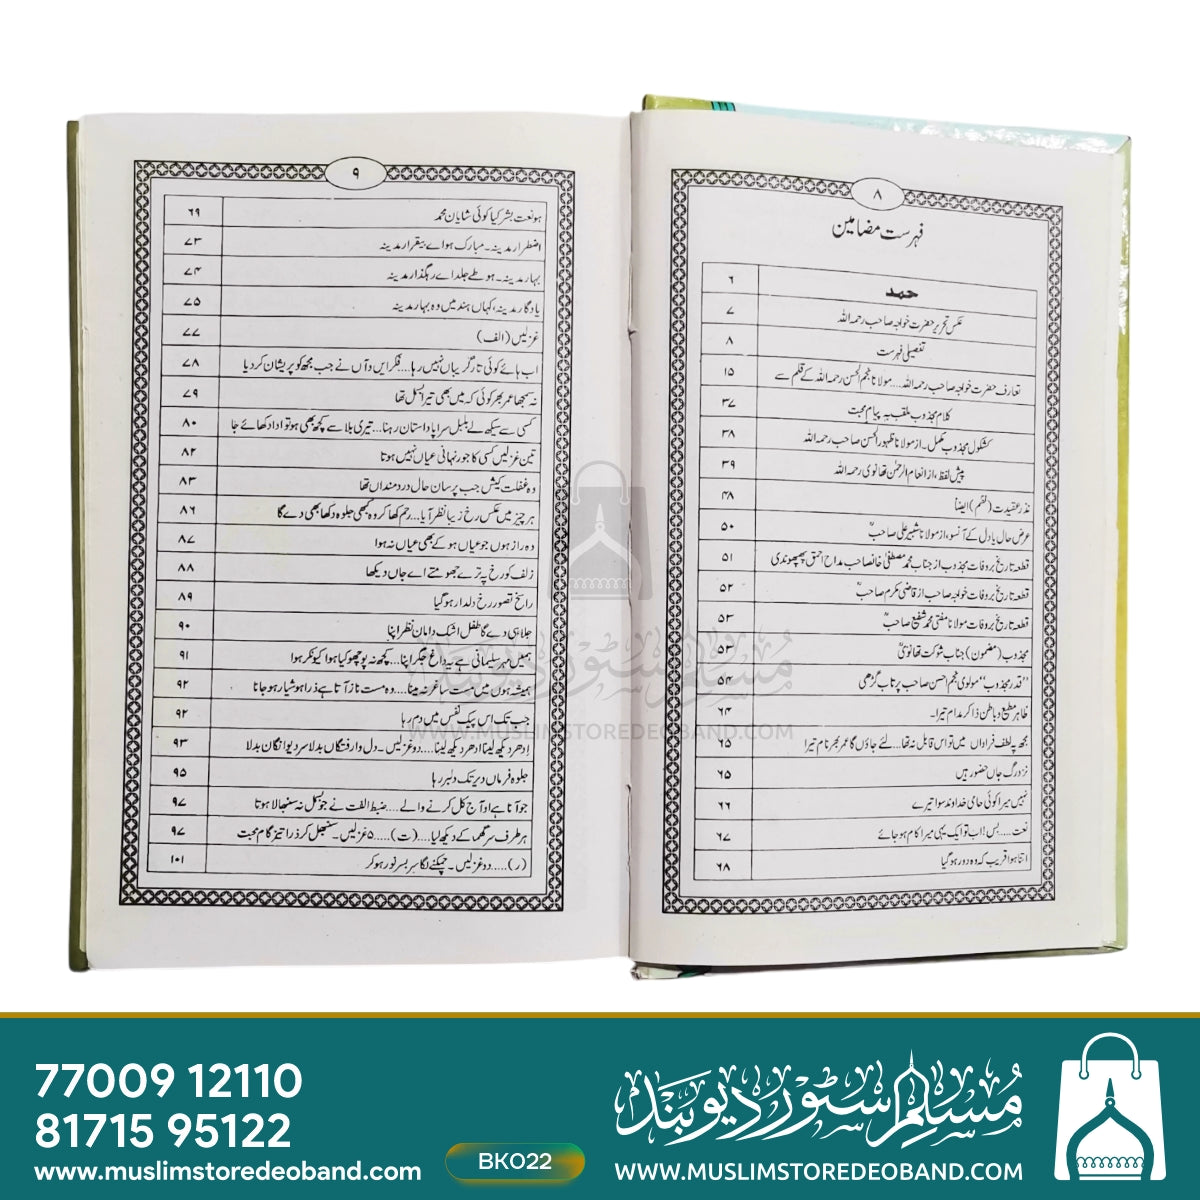 ۸
فہرست مضامین
حمد ۶
عکس تحریر حضرت خواجہ صاحب رحمہ اللہ ۷
تفصیلی فہرست ۸
تعارف حضرت خواجہ صاحب رحمہ اللہ.... مولانا نجم الحسن رحمہ اللہ کے قلم سے ۱۵
کلام مجذوب ملقب بہ پیام محبت ۳۷
کشکول مجذوب مکمل۔ از مولانا ظہور الحسن صاحب رحمہ اللہ ۳۸
پیش لفظ، از انعام الرحمٰن تھانوی رحمہ اللہ ۳۹
نذر عقیدت (نظم) ایضاً ۴۸
عرض حال یا دل کے آنسو، از مولانا شبیر علی صاحبؒ ۵۰
قطعہ تاریخ بر وفات مجذوب از جناب محمد مصطفیٰ خانصاحب مداح احمق پھپھوندی ۵۱
قطعہ تاریخ بر وفات خواجہ صاحب از قاضی مکرم صاحبؒ ۵۲
قطعہ تاریخ بر وفات مولانا مفتی محمد شفیع صاحبؒ ۵۳
مجذوب (مضمون) جناب شوکت تھانویؒ ۵۳
’’قدر مجذوب‘‘ مولوی نجم احسن صاحب پرتاب گڑھی ۵۴
ظاہر مطیع و باطن ذاکر مدام تیرا۔ ۶۴
مجھ پہ لطف فراواں میں تو اس قابل نہ تھا.... لئے جاؤں گا عمر بھر نام تیرا ۶۵
نزد رگ جاں حضور ہیں ۶۵
نہیں میرا کوئی حامی خداوند سوا تیرے ۶۶
نعت.... بس! اب تو ایک یہی میرا کام ہو جائے ۶۷
اتنا ہوا قریب کہ وہ دور ہو گیا ۶۸
۹
ہو نعت بشر کیا کوئی شایان محمد ۶۹
اضطرار مدینہ۔ مبارک ہو اے بیقرار مدینہ ۷۳
بہار مدینہ۔ ہو طے جلد اے رہگذار مدینہ ۷۴
یادگار مدینہ، کہاں ہند میں وہ بہار مدینہ ۷۵
غزلیں (الف) ۷۷
اب ہائے کوئی تار گریباں نہیں رہا.... فکر ایں و آں نے جب مجھ کو پریشان کر دیا ۷۸
نہ سمجھا عمر بھر کوئی کہ میں بھی تیرا بسمل تھا ۷۹
کسی سے سیکھ لے بلبل سراپا داستاں رہنا.... تیری بلا سے کچھ بھی ہو تو ادا دکھائے جا ۸۰
تین غزلیں کسی کا جور نہانی عیاں نہیں ہوتا ۸۲
وہ غفلت کیش جب پرسان حال درد منداں تھا ۸۳
ہر چیز میں عکس رخ زیبا نظر آیا.... رحم کھا کر وہ کبھی جلوہ دکھا بھی دے گا ۸۶
وہ راز ہوں جو عیاں ہو کے بھی عیاں نہ ہوا ۸۷
زلف کو رخ پہ ترے جھومتے اے جاں دیکھا ۸۸
راسخ تصور رخ دلدار ہو گیا ۸۹
جلا ہی دے گا طفل اشک دامان نظر اپنا ۹۰
ہمیں مہر سلیمانی ہے یہ داغ جگر اپنا.... کچھ نہ پوچھو کیا ہوا کیونکر ہوا ۹۱
ہمیشہ ہوں میں مست ساغر نہ مینا.... وہ مست ناز آتا ہے ذرا ہوشیار ہو جانا ۹۲
جب تک اس پیک نفس میں دم رہا ۹۲
اِدھر دیکھ لینا اُدھر دیکھ لینا.... دو غزلیں۔ دل وارفتگاں بدلا سر دیوانگان بدلا ۹۳
جلوہ فرماں دیر تک دلبر رہا ۹۵
جو آتا ہے او آج کل کرنے والے.... ضبط الفت نے جو بسمل نہ سنبھالا ہوتا ۹۷
ہر طرف سر گھما کے دیکھ لیا.... (ت).... ۵ غزلیں۔ سنبھل کر ذرا تیز گام محبت ۹۷
(ر).... دو غزلیں۔ چمکنے لگا سر بسر نور ہو کر ۱۰۱
مسلم سٹور دیوبند
WWW.MUSLIMSTOREDEOBAND.COM
77009 12110
81715 95122
www.muslimstoredeoband.com
BK022
مسلم سٹور دیوبند
WWW.MUSLIMSTOREDEOBAND.COM